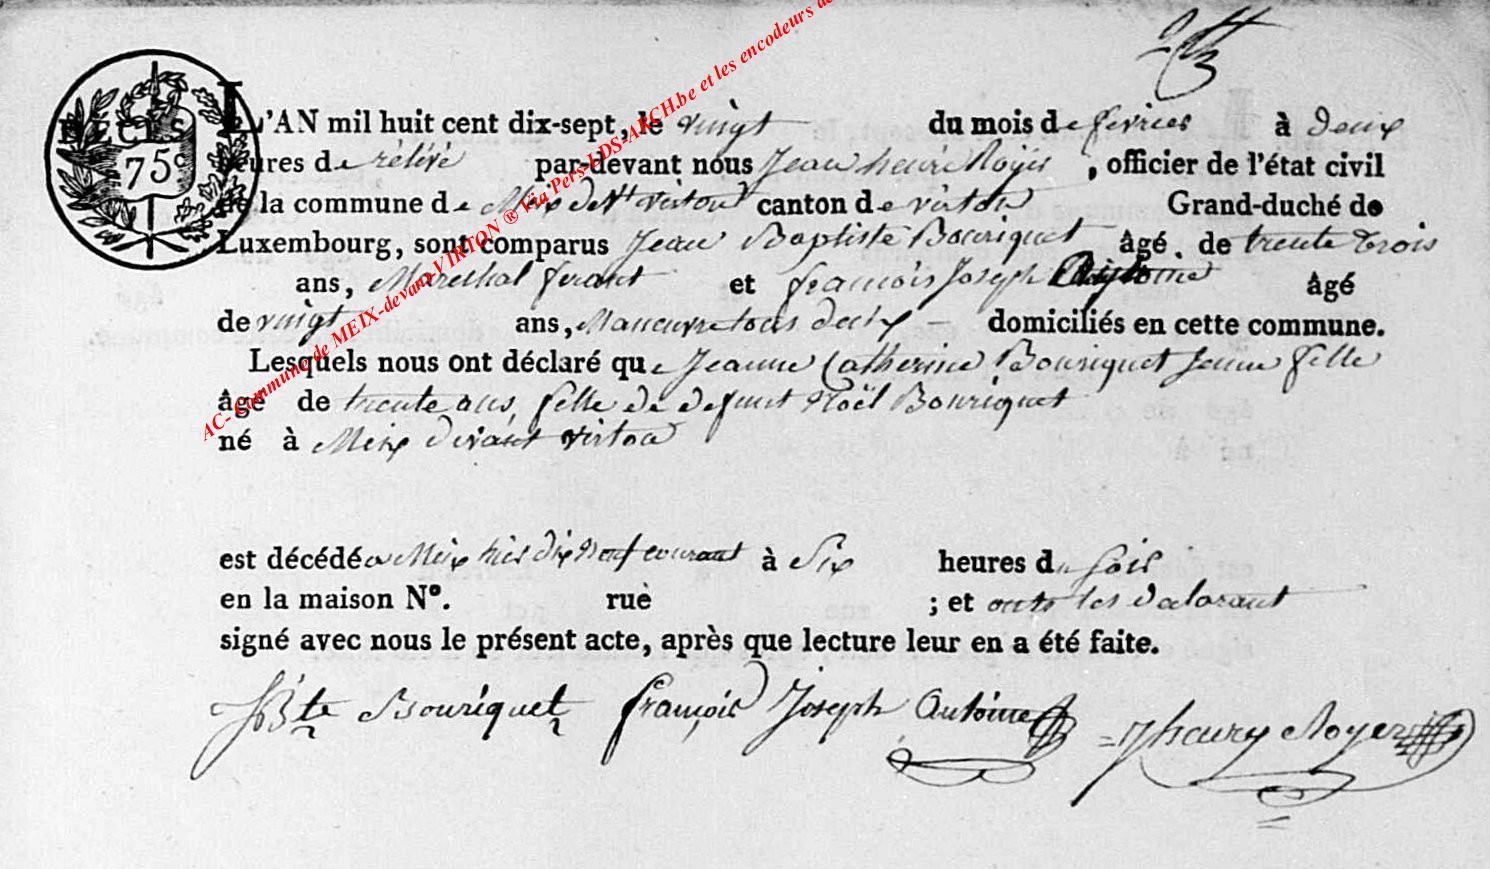 DÉCÈS
75c
L'AN mil huit cent dix-sept, le vingt du mois de fevrier à deux
heures de rélevé par-devant nous Jean henri Royer, officier de l'état civil
de la commune de Meix devt virton canton de virton Grand-duché de
Luxembourg, sont comparus Jean Baptiste Bouriquet âgé de trente trois
ans, Marechal ferant et francois Joseph Antoine âgé
de vingt ans, domiciliés en cette commune.
Lesquels nous ont déclaré que Jeanne Catherine Bouriquet Jeune fille
âgé de trente ans, fille de defunt Noël Bouriquet
né à Meix devant virton
est décédé a Meix hier dix Neuf courant à Six heures du soir
en la maison No. rue ; et onts les
signé avec nous le présent acte, après que lecture leur en a été faite.
JBte Bouriquet françois Joseph Antoine Jhenry Royer
AC- Commune de MEIX-devant-VIRTON ® Via Pers-LDS-ARCH.be et les encodeurs de